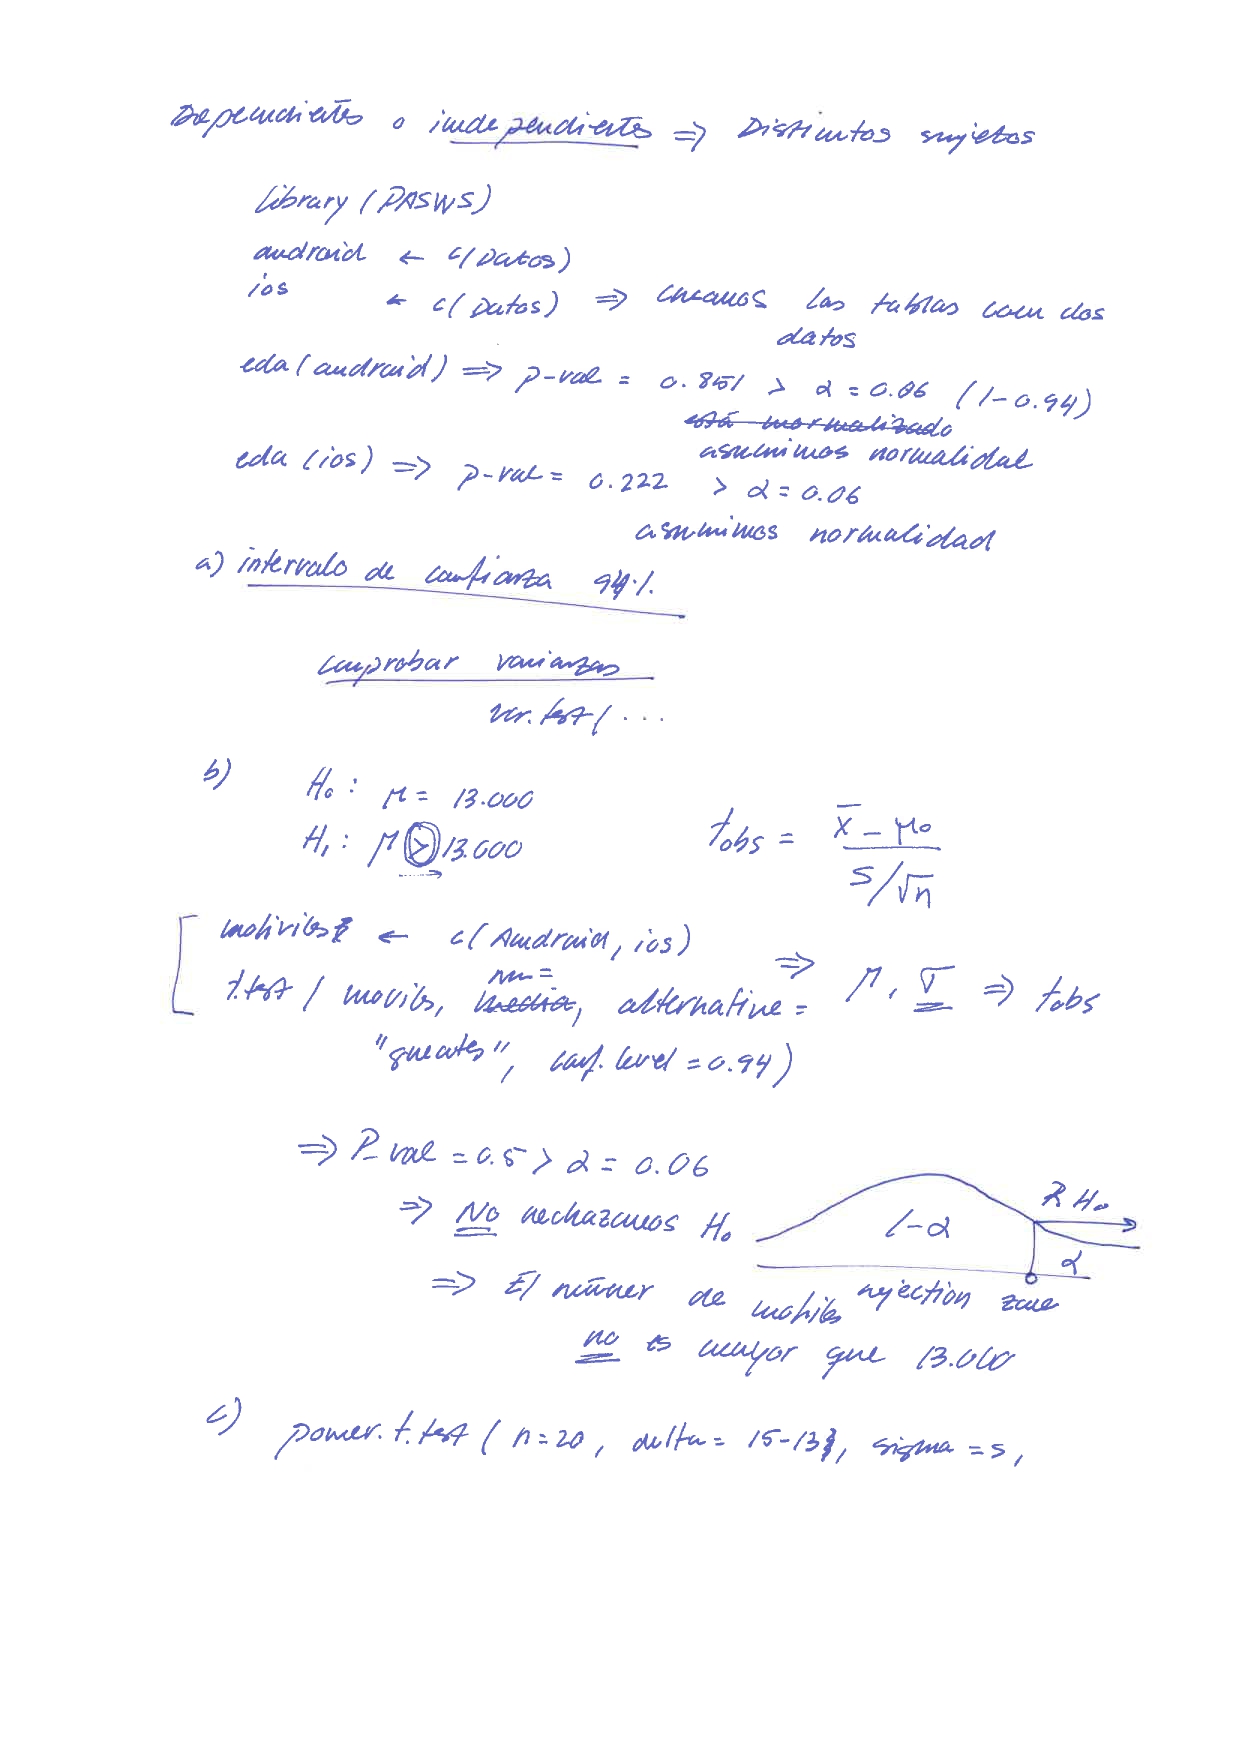 Dependientes o independientes ⇒ Distintos sujetos
library (PASWS)
android ← c(Datos)
ios ← c(Datos) ⇒ creamos las tablas con dos
datos
eda (android) ⇒ p-val = 0.851 > α = 0.06 (1-0.94)
está normalizado
asumimos normalidad
eda (ios) ⇒ p-val = 0.222 > α = 0.06
asumimos normalidad
a) intervalo de confianza 94%.
comprobar varianzas
var.test( ...
b) H₀ : μ = 13.000
H₁ : μ > 13.000
tobs = x̄ - μ₀ / s/√n
← c(Android, ios)
t.test ( moviles, media, mu= alternative =
"greater", conf. level = 0.94)
⇒ μ, σ ⇒ tobs
⇒ P-val = 0.5 > α = 0.06
⇒ No rechazamos H₀
1-α
R H₀
α
rejection zone
⇒ El número de mobiles
no es mayor que 13.000
c) power.t.test ( n=20, delta= 15-13, sigma = s,